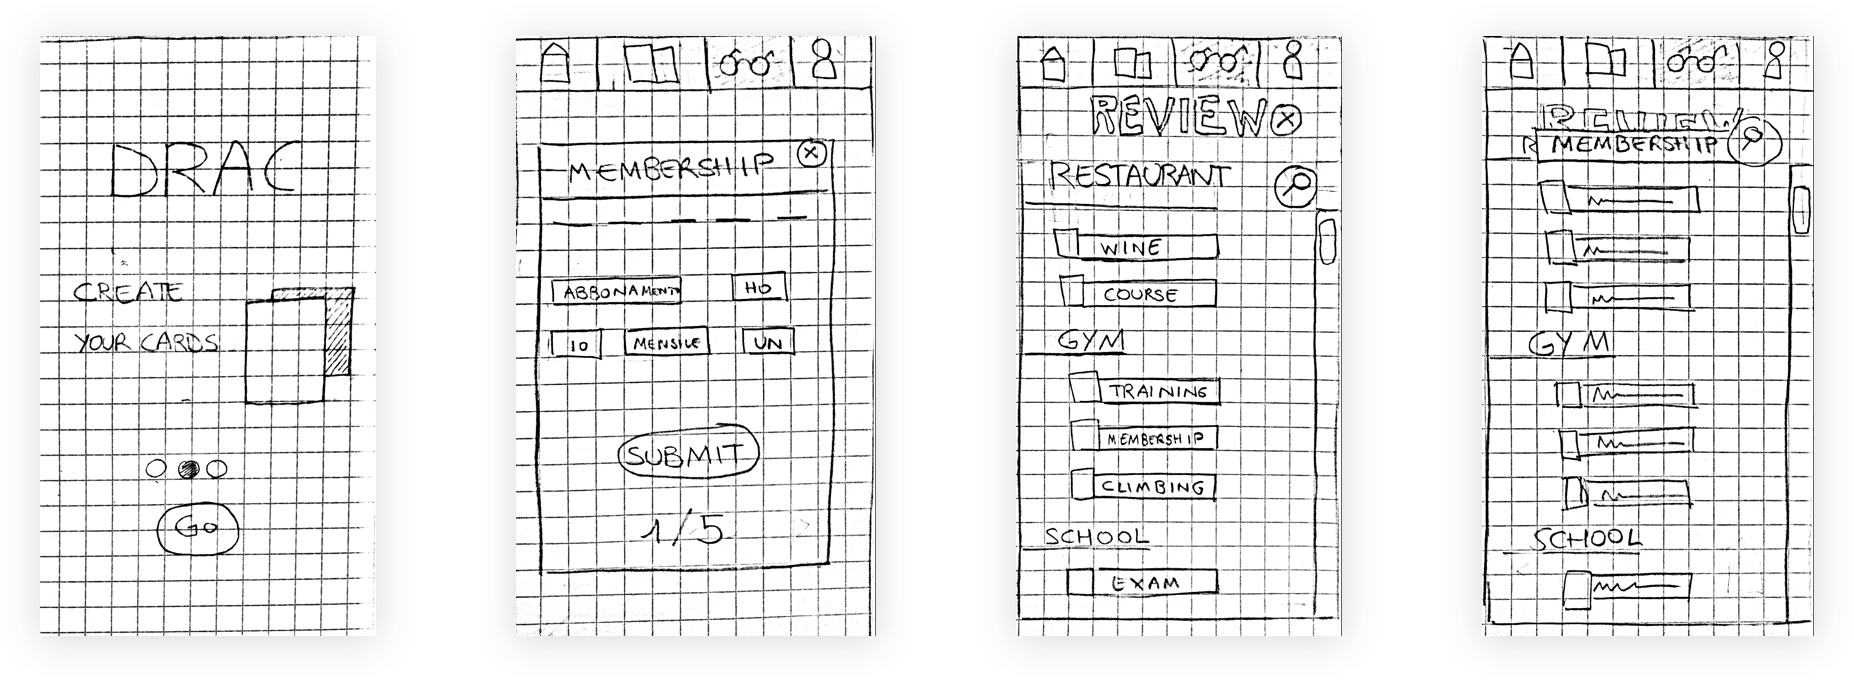 DRAC
CREATE
YOUR CARDS
Go
MEMBERSHIP
ABBONAMENTO HO
IO MENSILE UN
SUBMIT
1/5
REVIEW
RESTAURANT
WINE
COURSE
GYM
TRAINING
MEMBERSHIP
CLIMBING
SCHOOL
EXAM
REVIEW
R MEMBERSHIP
GYM
SCHOOL